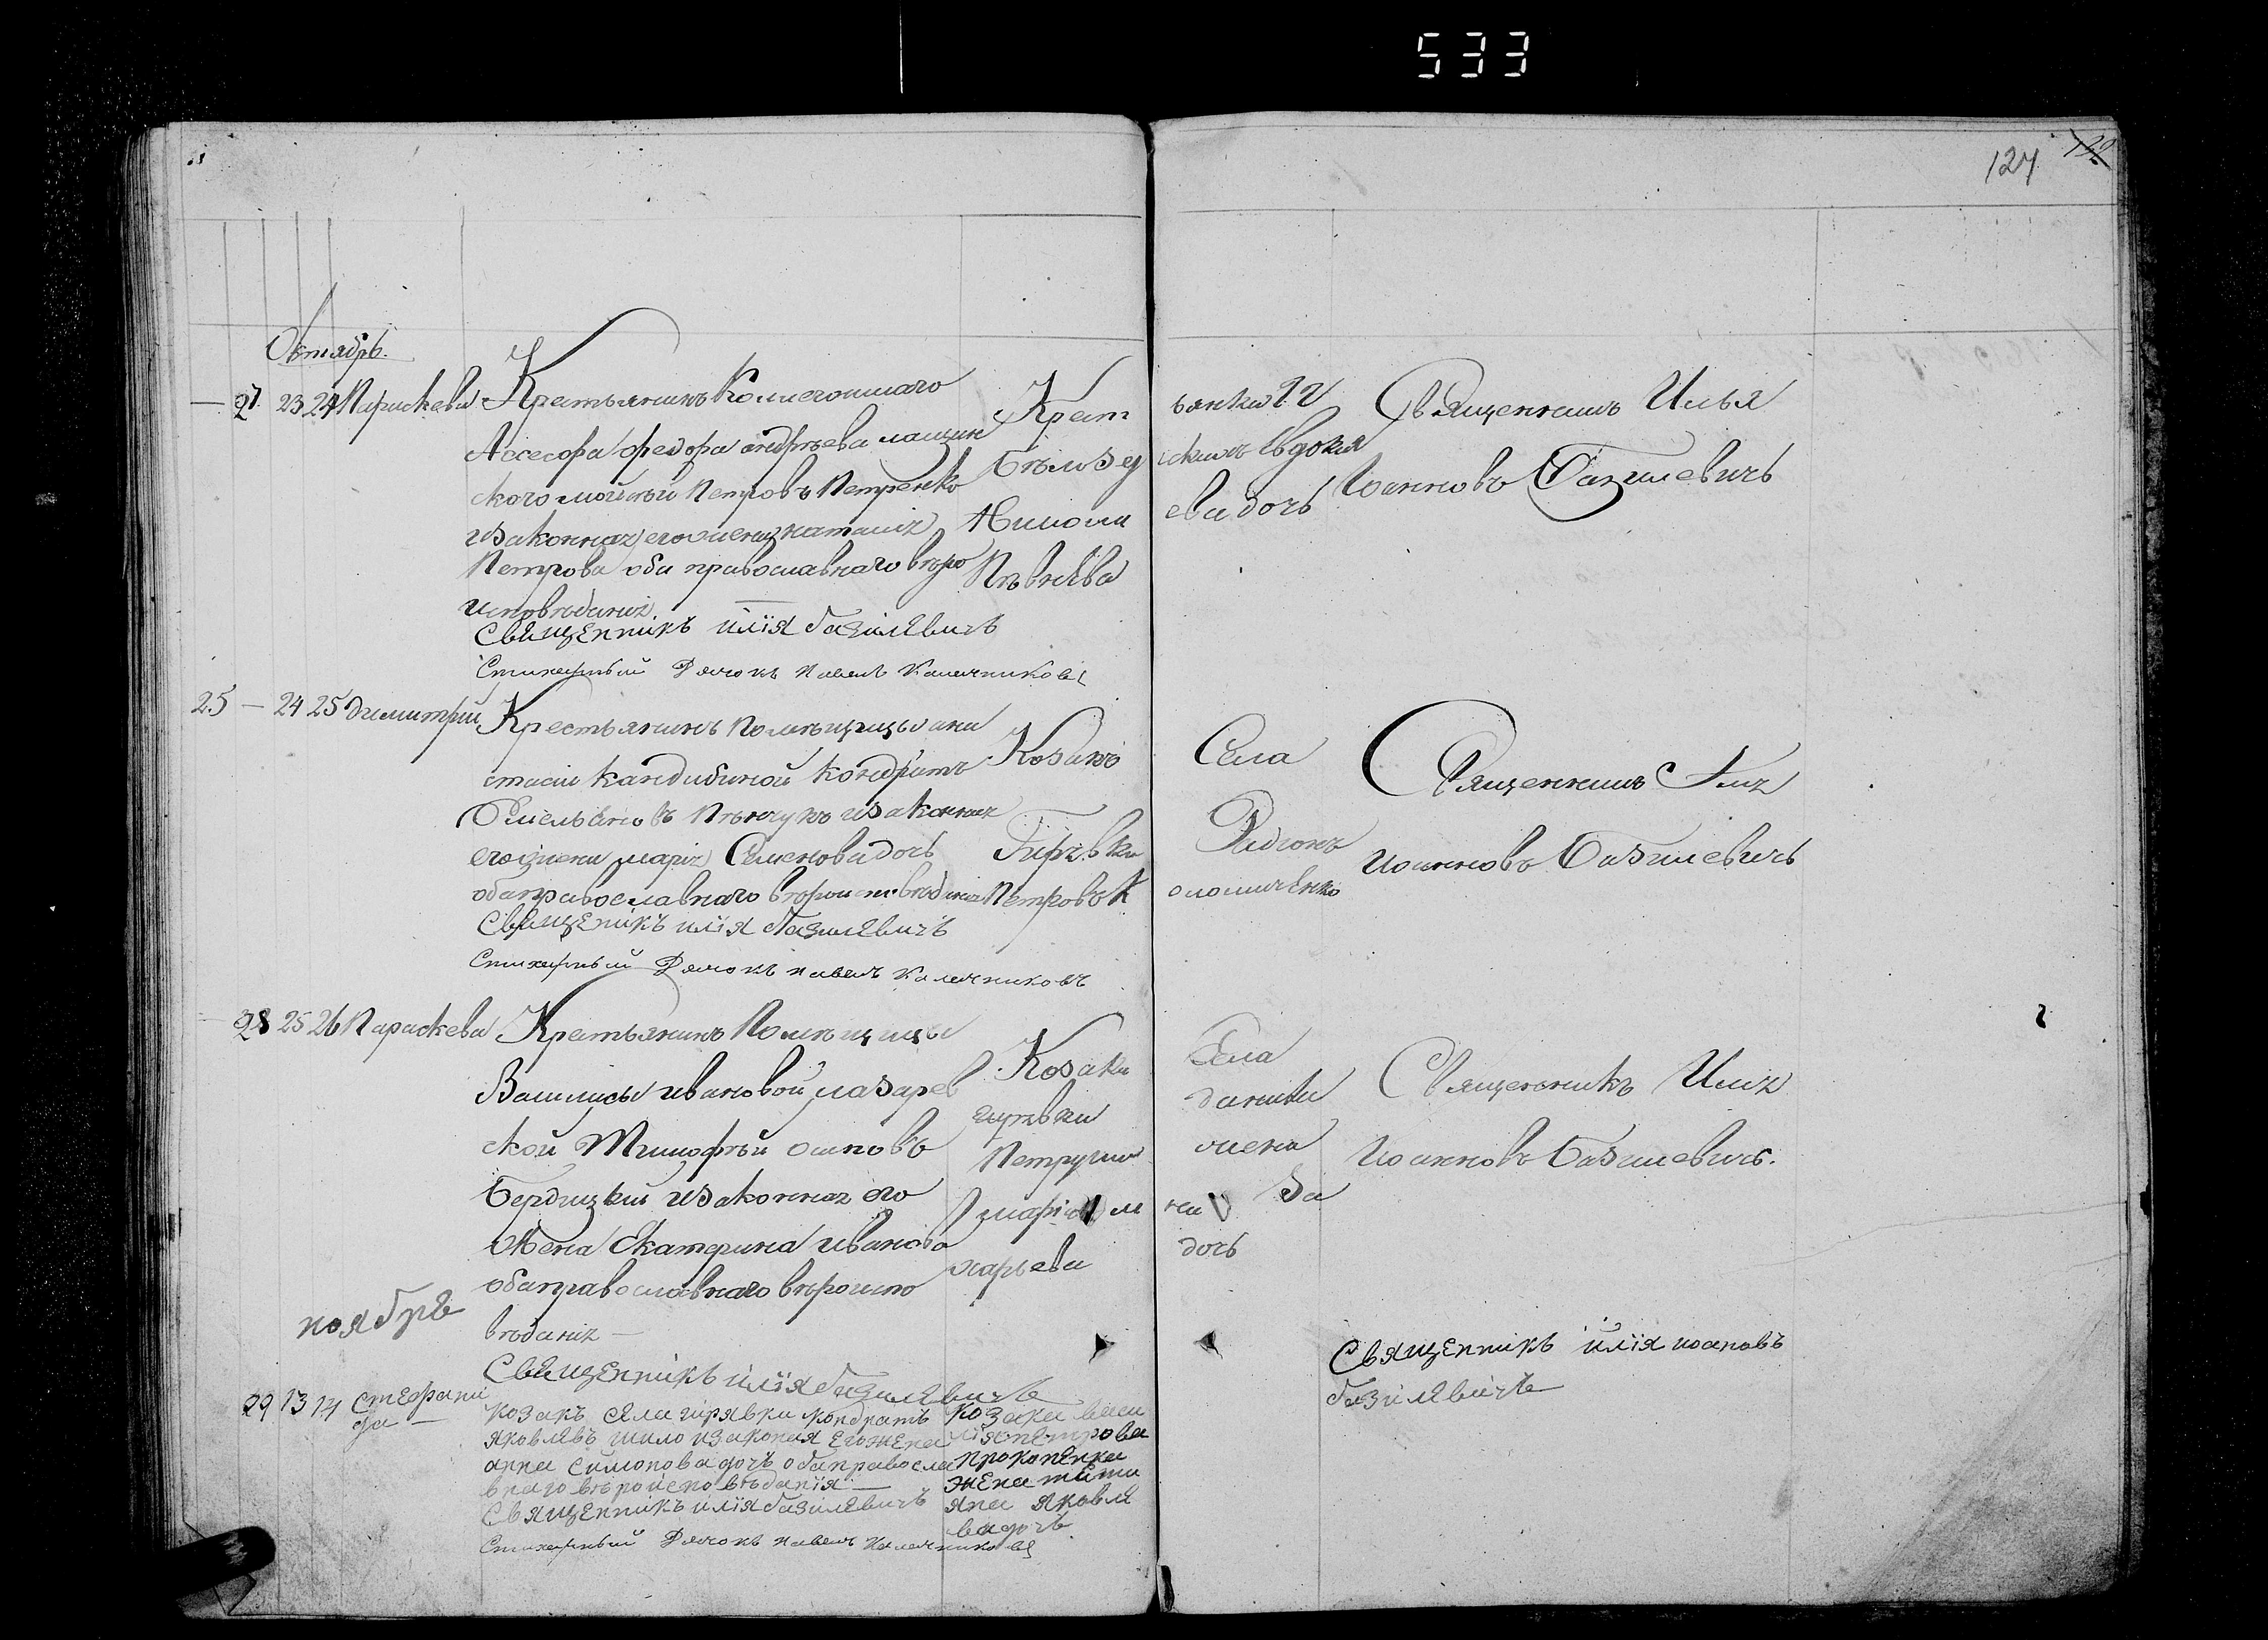 533
127 122
Октябрь.
27 23 24 Параскева Крестьянинъ Коллегскаго
Ассесора федора андрѣева лащин
ского мойсей Петровъ Петренко
изаконная его жена наталія
Петрова оба православнаго вѣро
исповѣданія
Священникъ илія базилевичъ
Стихарный Дячокъ Павелъ Калачниковъ
Крест ьянки
Бѣлозер скихъ Евдокия
Никола ева дочь
Пѣвнева
Священникъ Илья
Іоанновъ Базилевичъ
25 — 24 25 димитрий Крестьянинъ Помѣщицы ана
стасіи кандибиной кондратъ
Емельяновъ изаконная
его жена марія Семенова дочь
оба православнаго вѣроисповѣданія
Священикъ илія базилевичъ
Стихарный Дячокъ павелъ Калачниковъ
Козакъ Села
Гирявки Радионъ
Петровъ К оломиченко
Священникъ Илія
иоанновъ Базилевичъ
28 25 26 Параскева Крестьянинъ Помѣщицы
Василисы ивановой лазарев
ской Тимофѣй осиповъ
Бердицкий изаконная его
жена Екатерина иванова
оба православнаго вѣроиспо
вѣданія —
Священникъ илія базилевичъ
Козака Села
гирявки данила
Петруши жена
марія м
харьева дочь
Священникъ Илія
Иоанновъ Базилевичъ.
ноябръ
29 13 14 стефани
да — козакъ села гирявки кондратъ
яковлевъ шило изаконая его жена
анна симонова дочъ оба правосла
внаго вѣроисповѣданія —
Священникъ илія базилевичъ
Стихарный Дячокъ павелъ Калачниковъ
козака васи
лія петрова
прокопенка
жена тати
яна яковле
ва дочъ
Священникъ илія иоановъ
базилевичъ